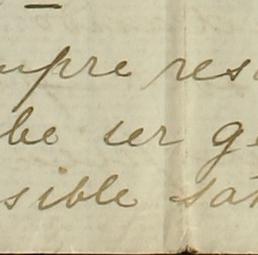 mpre res
be ser ge
sible sat